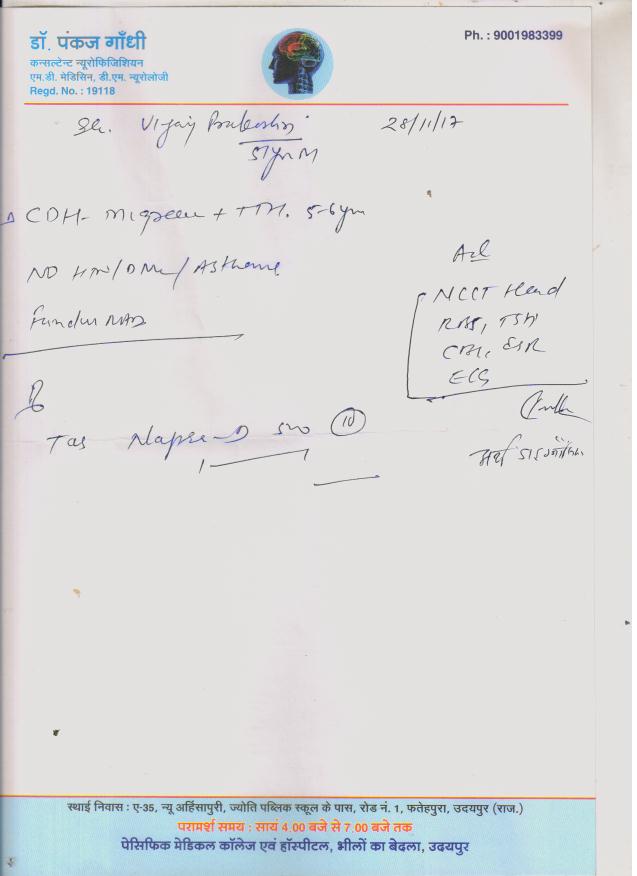 डॉ. पंकज गाँधी
कन्सल्टेन्ट न्यूरोफिजिशियन
एम.डी. मेडिसिन, डी.एम. न्यूरोलोजी
Regd. No. : 19118
Ph. : 9001983399
Vijay
28/11/17
CDH- + TTH. 5-6yrs
NO HTN/DM/Asthma
Fundus NAD
Adv
NCCT Head
RBS, TSH
CBC, ESR
ECG
Tab 500 10
स्थाई निवास : ए-35, न्यू अहिंसापुरी, ज्योति पब्लिक स्कूल के पास, रोड नं. 1, फतेहपुरा, उदयपुर (राज.)
परामर्श समय : सायं 4.00 बजे से 7.00 बजे तक
पेसिफिक मेडिकल कॉलेज एवं हॉस्पीटल, भीलों का बेदला, उदयपुर